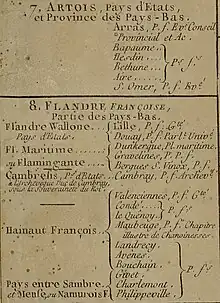 7. ARTOIS, Pays d'Etats,
et Province des Pays-Bas.
Arras, P. f. Evé. Conseil
Provincial et Ac.
Bapaume
Hesdin
Bethune
Aire
P.s f.s
S. Omer, P. f. Evé.
8. FLANDRE FRANÇOISE,
Partie des Pays-Bas.
Flandre Wallone
Pays d'Etats.
Lille, P. f. Gté.
Douay, P. f. Parlt. Univé.
Fl. Maritime
ou Flamingante
Dunkerque, Pl. maritime.
Gravelines, P. F.
Bergues S. Vinox, P. f.
Cambresis, P. d'Etats
Cambray, P. f. Archevé.
à l'archevêque Duc de Cambray,
sous la Souveraineté du Roi
Hainaut François
Valenciennes, P. f. Gté.
Condé
le Quenoy
P.s f.s
Maubeuge, P. f. Chapitre
illustre de Chanoinesses
Landrecy
Avenes
Bouchain
Givet
Charlemont
Philippeville
P.s f.s
Pays entre Sambre
et Meuse, ou Namurois F.